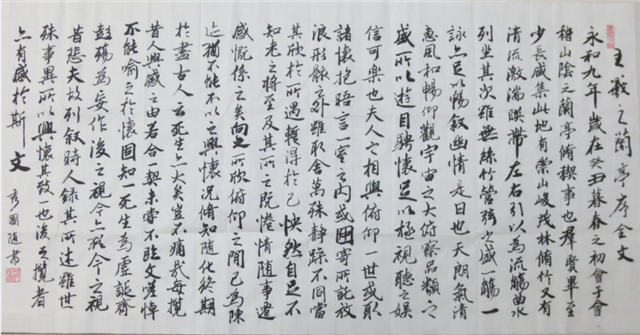 王羲之蘭亭序全文
永和九年歲在癸丑暮春之初會于會
稽山陰之蘭亭脩稧事也羣賢畢至
少長咸集此地有崇山峻茂林脩竹又有
清流激湍暎帶左右引以為流觴曲水
列坐其次雖無絲竹管弦之盛一觴一
詠亦足以暢叙幽情是日也天朗氣清
惠風和暢仰觀宇宙之大俯察品類之
盛所以遊目騁懷足以極視聽之娛
信可樂也夫人之相與俯仰一世或取
諸懷抱悟言一室之内或因寄所託放
浪形骸之外雖取舍萬殊静躁不同當
其欣於所遇暫得於己怏然自足不
知老之將至及其所之既惓情隨事遷
感慨係之矣向之所欣俯仰之間已為陳
迹猶不能不以之興懷況脩短隨化終期
於盡古人云死生亦大矣豈不痛哉每攬
昔人興感之由若合一契未嘗不臨文嗟悼
不能喻之於懷固知一死生為虛誕齊
彭殤為妄作後之視今亦猶今之視
昔悲夫故列叙時人錄其所述雖世
殊事異所以興懷其致一也後之攬者
亦有感於斯文
國隨書